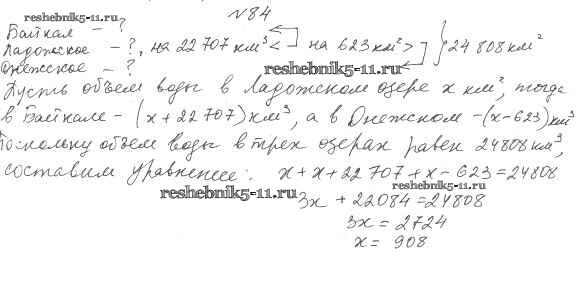 №84
reshebnik5-11.ru
Байкал - ?
Ладожское - ?, на 22 707 км³ < на 623 км² > } 24 808 км²
Онежское - ?
reshebnik5-11.ru
Пусть объем воды в Ладожском озере x км², тогда
в Байкале - (x + 22 707) км³, а в Онежском - (x - 623) км³
Поскольку объем воды в трех озерах равен 24808 км³,
составим уравнение: x + x + 22 707 + x - 623 = 24808
reshebnik5-11.ru
reshebnik5-11.ru
3x + 22084 = 24808
3x = 2724
x = 908